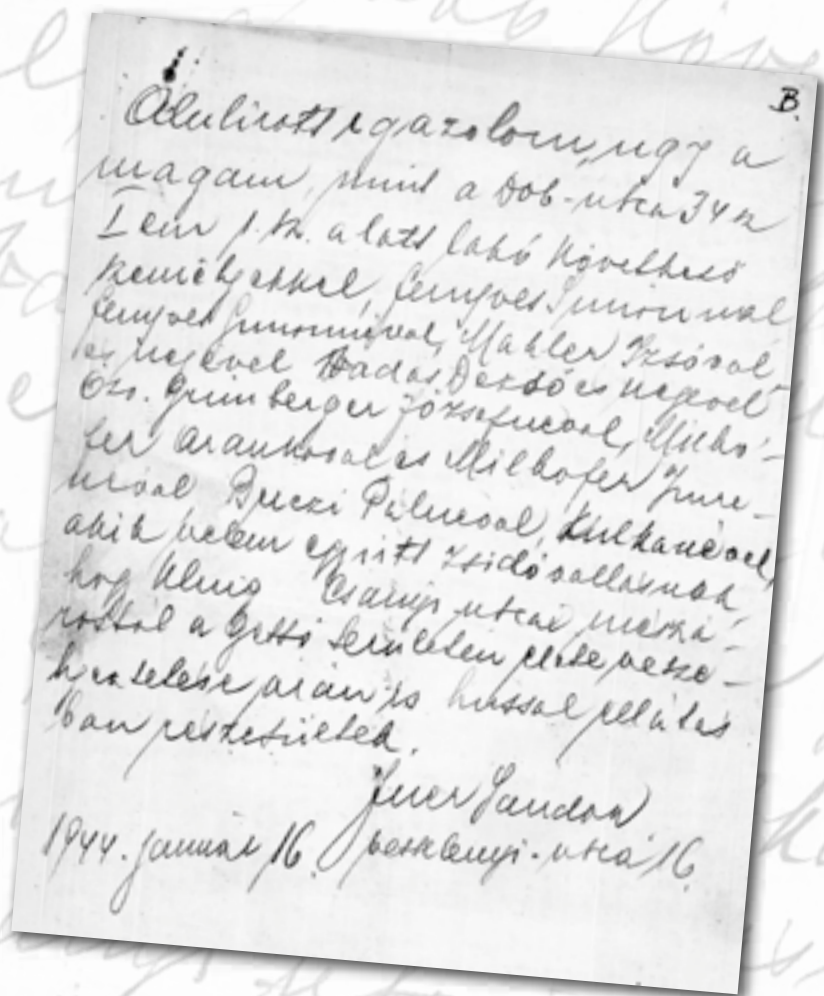 B.
Alulirott igazolom, ugy a
magam, mint a Dob-utca 34 sz
I em 1. sz. alatt lakó következő
személyekkel, Fenyves Simonnal
Fenyves Simonnéval, Mahler Izsóval
és nejével Hadas Dezső és nejével
Özv. Grünberger Józsefnéval, Milhó-
fer Arankával és Milhofer Imre-
néval Bruczi Pálnéval,
akik velem együtt zsidó vallásuak,
hogy Csányi utcai mészá-
rostól a Gettó területén élete vesze-
is hussal ellátás
ban részesültek.
Sandor
1944. január 16. utca 16.